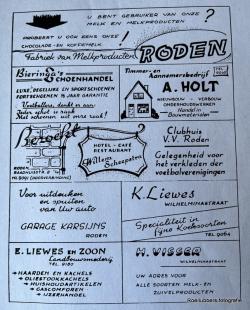 U BENT GEBRUIKER VAN ONZE
MELK EN MELKPRODUCTEN ?
PROBEERT U OOK EENS ONZE
CHOCOLADE-EN KOFFIEMELK !
Fabriek van Melkproducten RODEN
Bieringa's
SCHOENHANDEL
LUXE, DEGELIJKE EN SPORTSCHOENEN
FORTSCHOENEN ½ JAAR GARANTIE
Voetballers, denkt er aan
Met schoenen uit onze zaak!
Timmer- en
Aannemersbedrijf
TEL.
A. HOLT
NIEUWBOUW - VERBOUW
ONDERHOUDSWERKEN
Handel in
Bouwmaterialen
Bezoekt
RODEN
HOTEL - CAFÉ
RESTAURANT
Willem Scheepstra
Clubhuis
V.V. Roden
Gelegenheid voor
het verkleden der
voetbalverenigingen
Voor uitdeuken
en spuiten
van Uw auto
GARAGE KARSIJNS
RODEN
K. Liewes
WILHELMINASTRAAT
Specialiteit in
fijne Kookworsten
TEL. 9064
E. LIEWES EN ZOON
Landbouwsmederij
TEL. 9180
HAARDEN EN KACHELS
OLIESTOOKKACHELS
HUISHOUDARTIKELEN
GASCOMFOREN
IJZERHANDEL
H. VISSER
WILHELMINASTRAAT
UW ADRES VOOR
ALLE SOORTEN MELK - EN
ZUIVELPRODUCTEN
Roelilubbers.fotografie